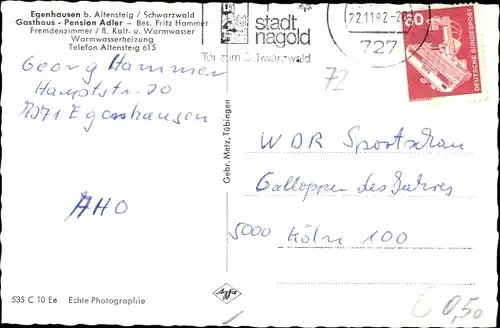 Egenhausen b. Altensteig / Schwarzwald
Gasthaus - Pension Adler - Bes. Fritz Hammer
Fremdenzimmer / fl. Kalt. u. Warmwasser
Warmwasserheizung
Telefon Altensteig 615
Georg Hammer
Hauptstr. 20
7271 Egenhausen
AHO
535 C 10 Ee Echte Photographie
Gebr. Metz, Tübingen
Agfa
stadt
nagold
Tor zum Schwarzwald
22.11.82-20
727
72
60
DEUTSCHE BUNDESPOST
WDR Sportschau
Galopper des Jahres
5000 Köln 100
€ 0,50